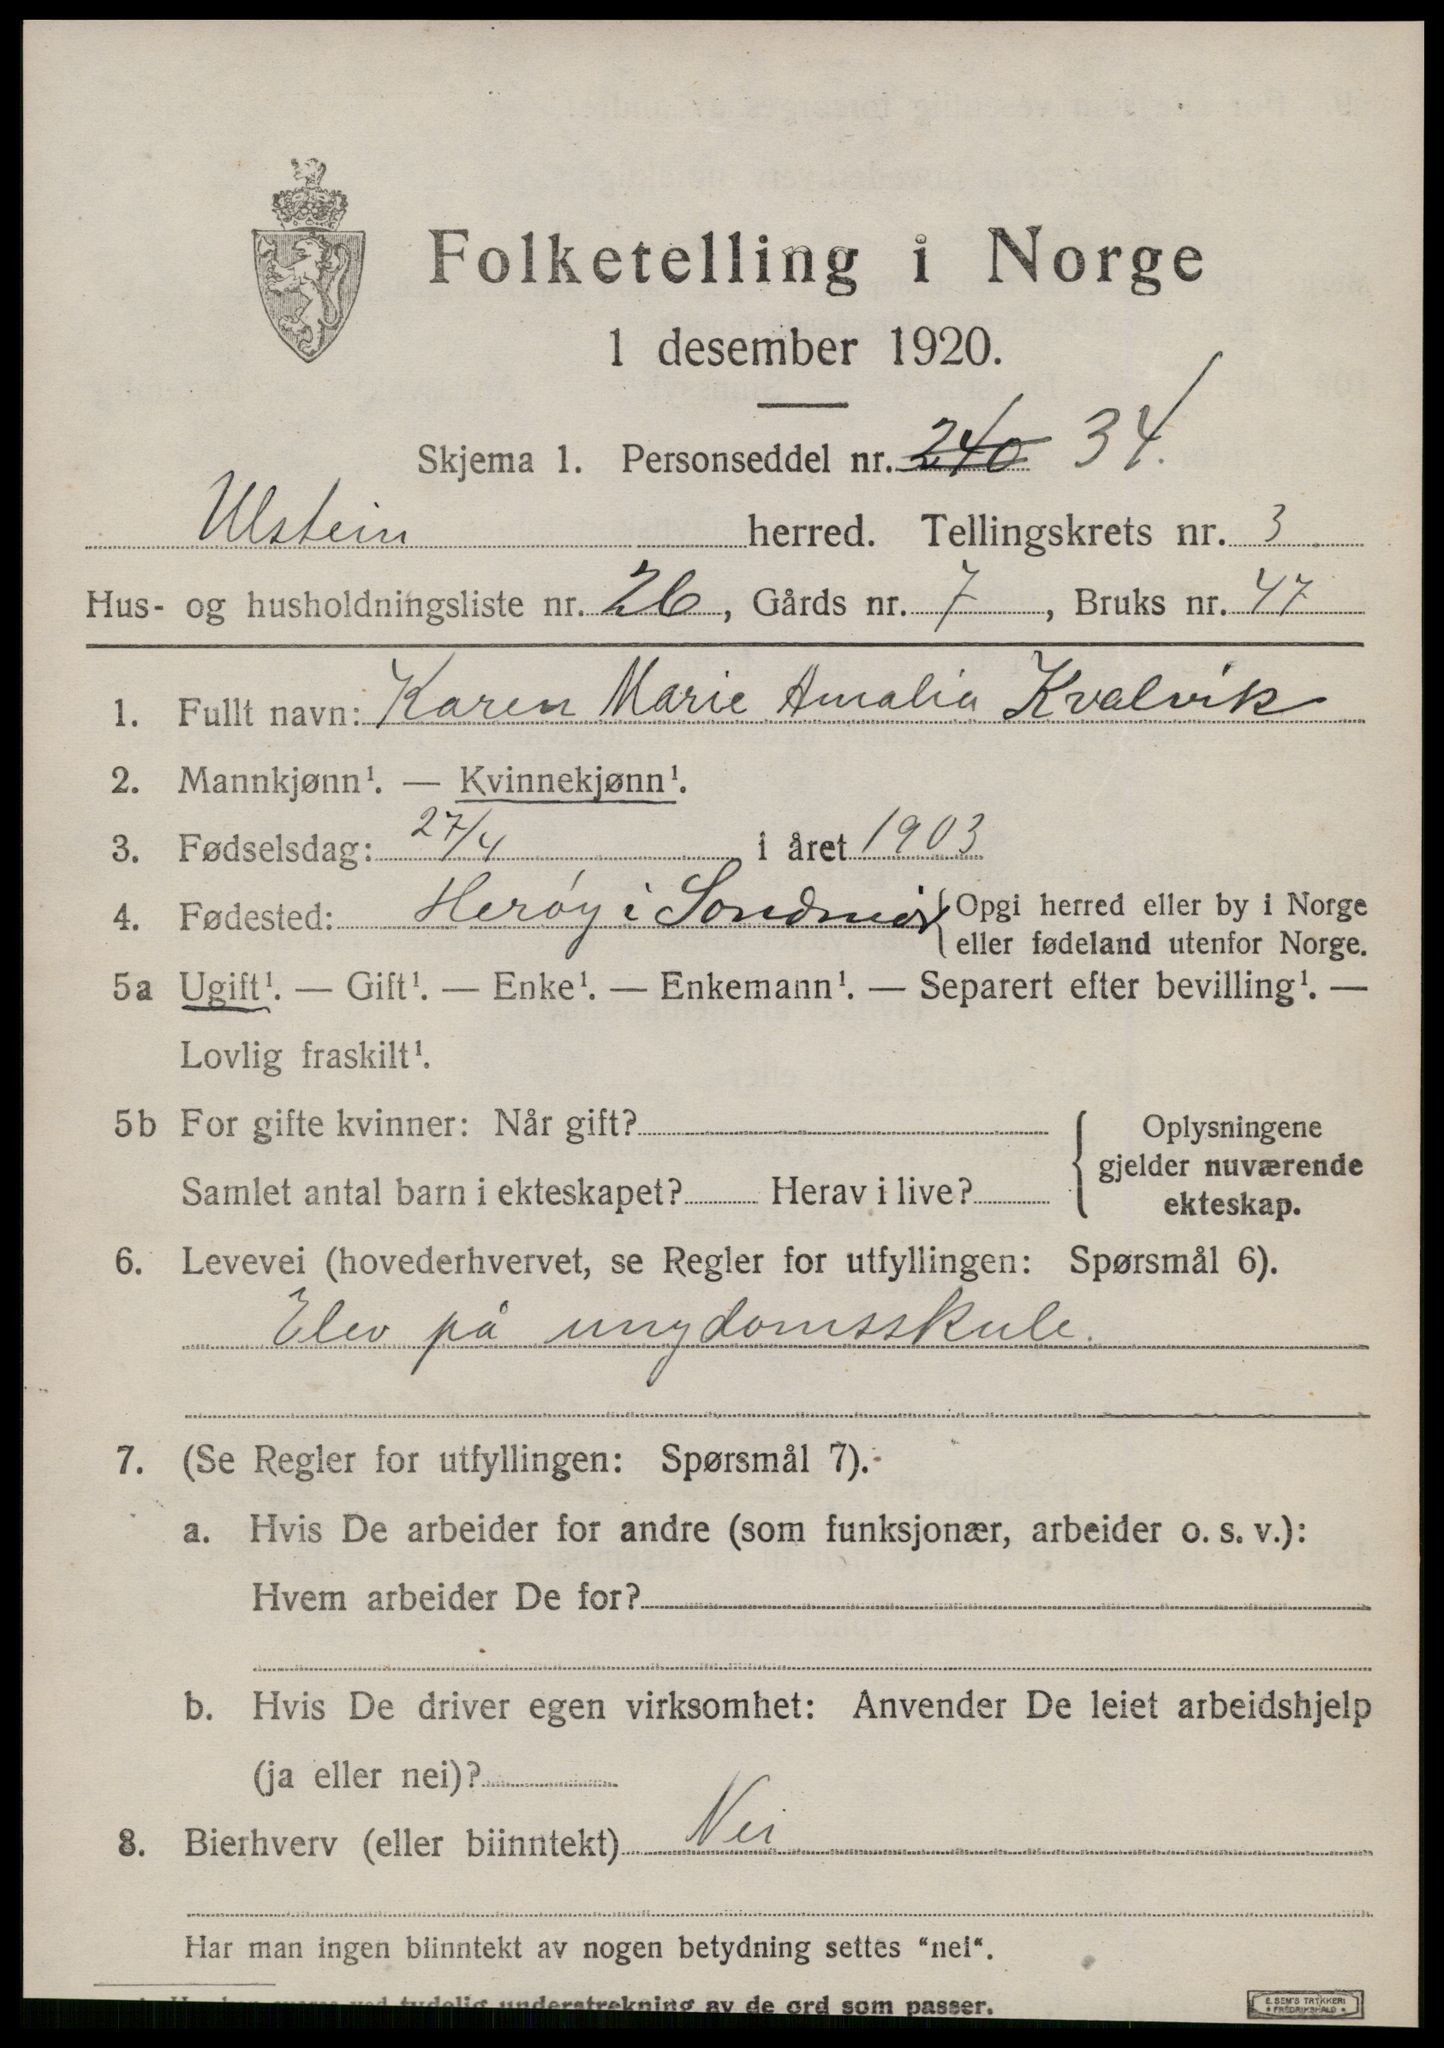 Folketelling i Norge
1 desember 1920.
Skjema 1. Personseddel nr. 240 34.
Ulstein herred. Tellingskrets nr. 3
Hus- og husholdningsliste nr. 26, Gårds nr. 7, Bruks nr. 47
1. Fullt navn: Karen Marie Amalia Kvalvik
2. Mannkjønn¹. — Kvinnekjønn¹.
3. Fødselsdag: 27/4 i året 1903
4. Fødested: Herøy i Sondmør { Opgi herred eller by i Norge
eller fødeland utenfor Norge.
5a Ugift¹. — Gift¹. — Enke¹. — Enkemann¹. — Separert efter bevilling¹. —
Lovlig fraskilt¹.
5b For gifte kvinner: Når gift?
Samlet antal barn i ekteskapet? Herav i live?
Oplysningene
gjelder nuværende
ekteskap.
6. Levevei (hovederhvervet, se Regler for utfyllingen: Spørsmål 6).
Elev på ungdomsskule.
7. (Se Regler for utfyllingen: Spørsmål 7).
a. Hvis De arbeider for andre (som funksjonær, arbeider o. s. v.):
Hvem arbeider De for?
b. Hvis De driver egen virksomhet: Anvender De leiet arbeidshjelp
(ja eller nei)?
8. Bierhverv (eller biinntekt) Nei
Har man ingen biinntekt av nogen betydning settes "nei".
ved tydelig understrekning av de ord som passer.
E. SEM'S TRYKKERI
FREDRIKSHALD